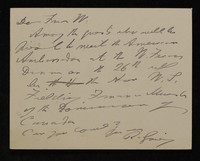 Dear Frau M.
Among the guests who will be
present to meet the American
Ambassador at the
Dinner on the 26th will
be the Hon. W. S.
Fielding, Finance Minister
of the Dominion of
Canada
Can you come?